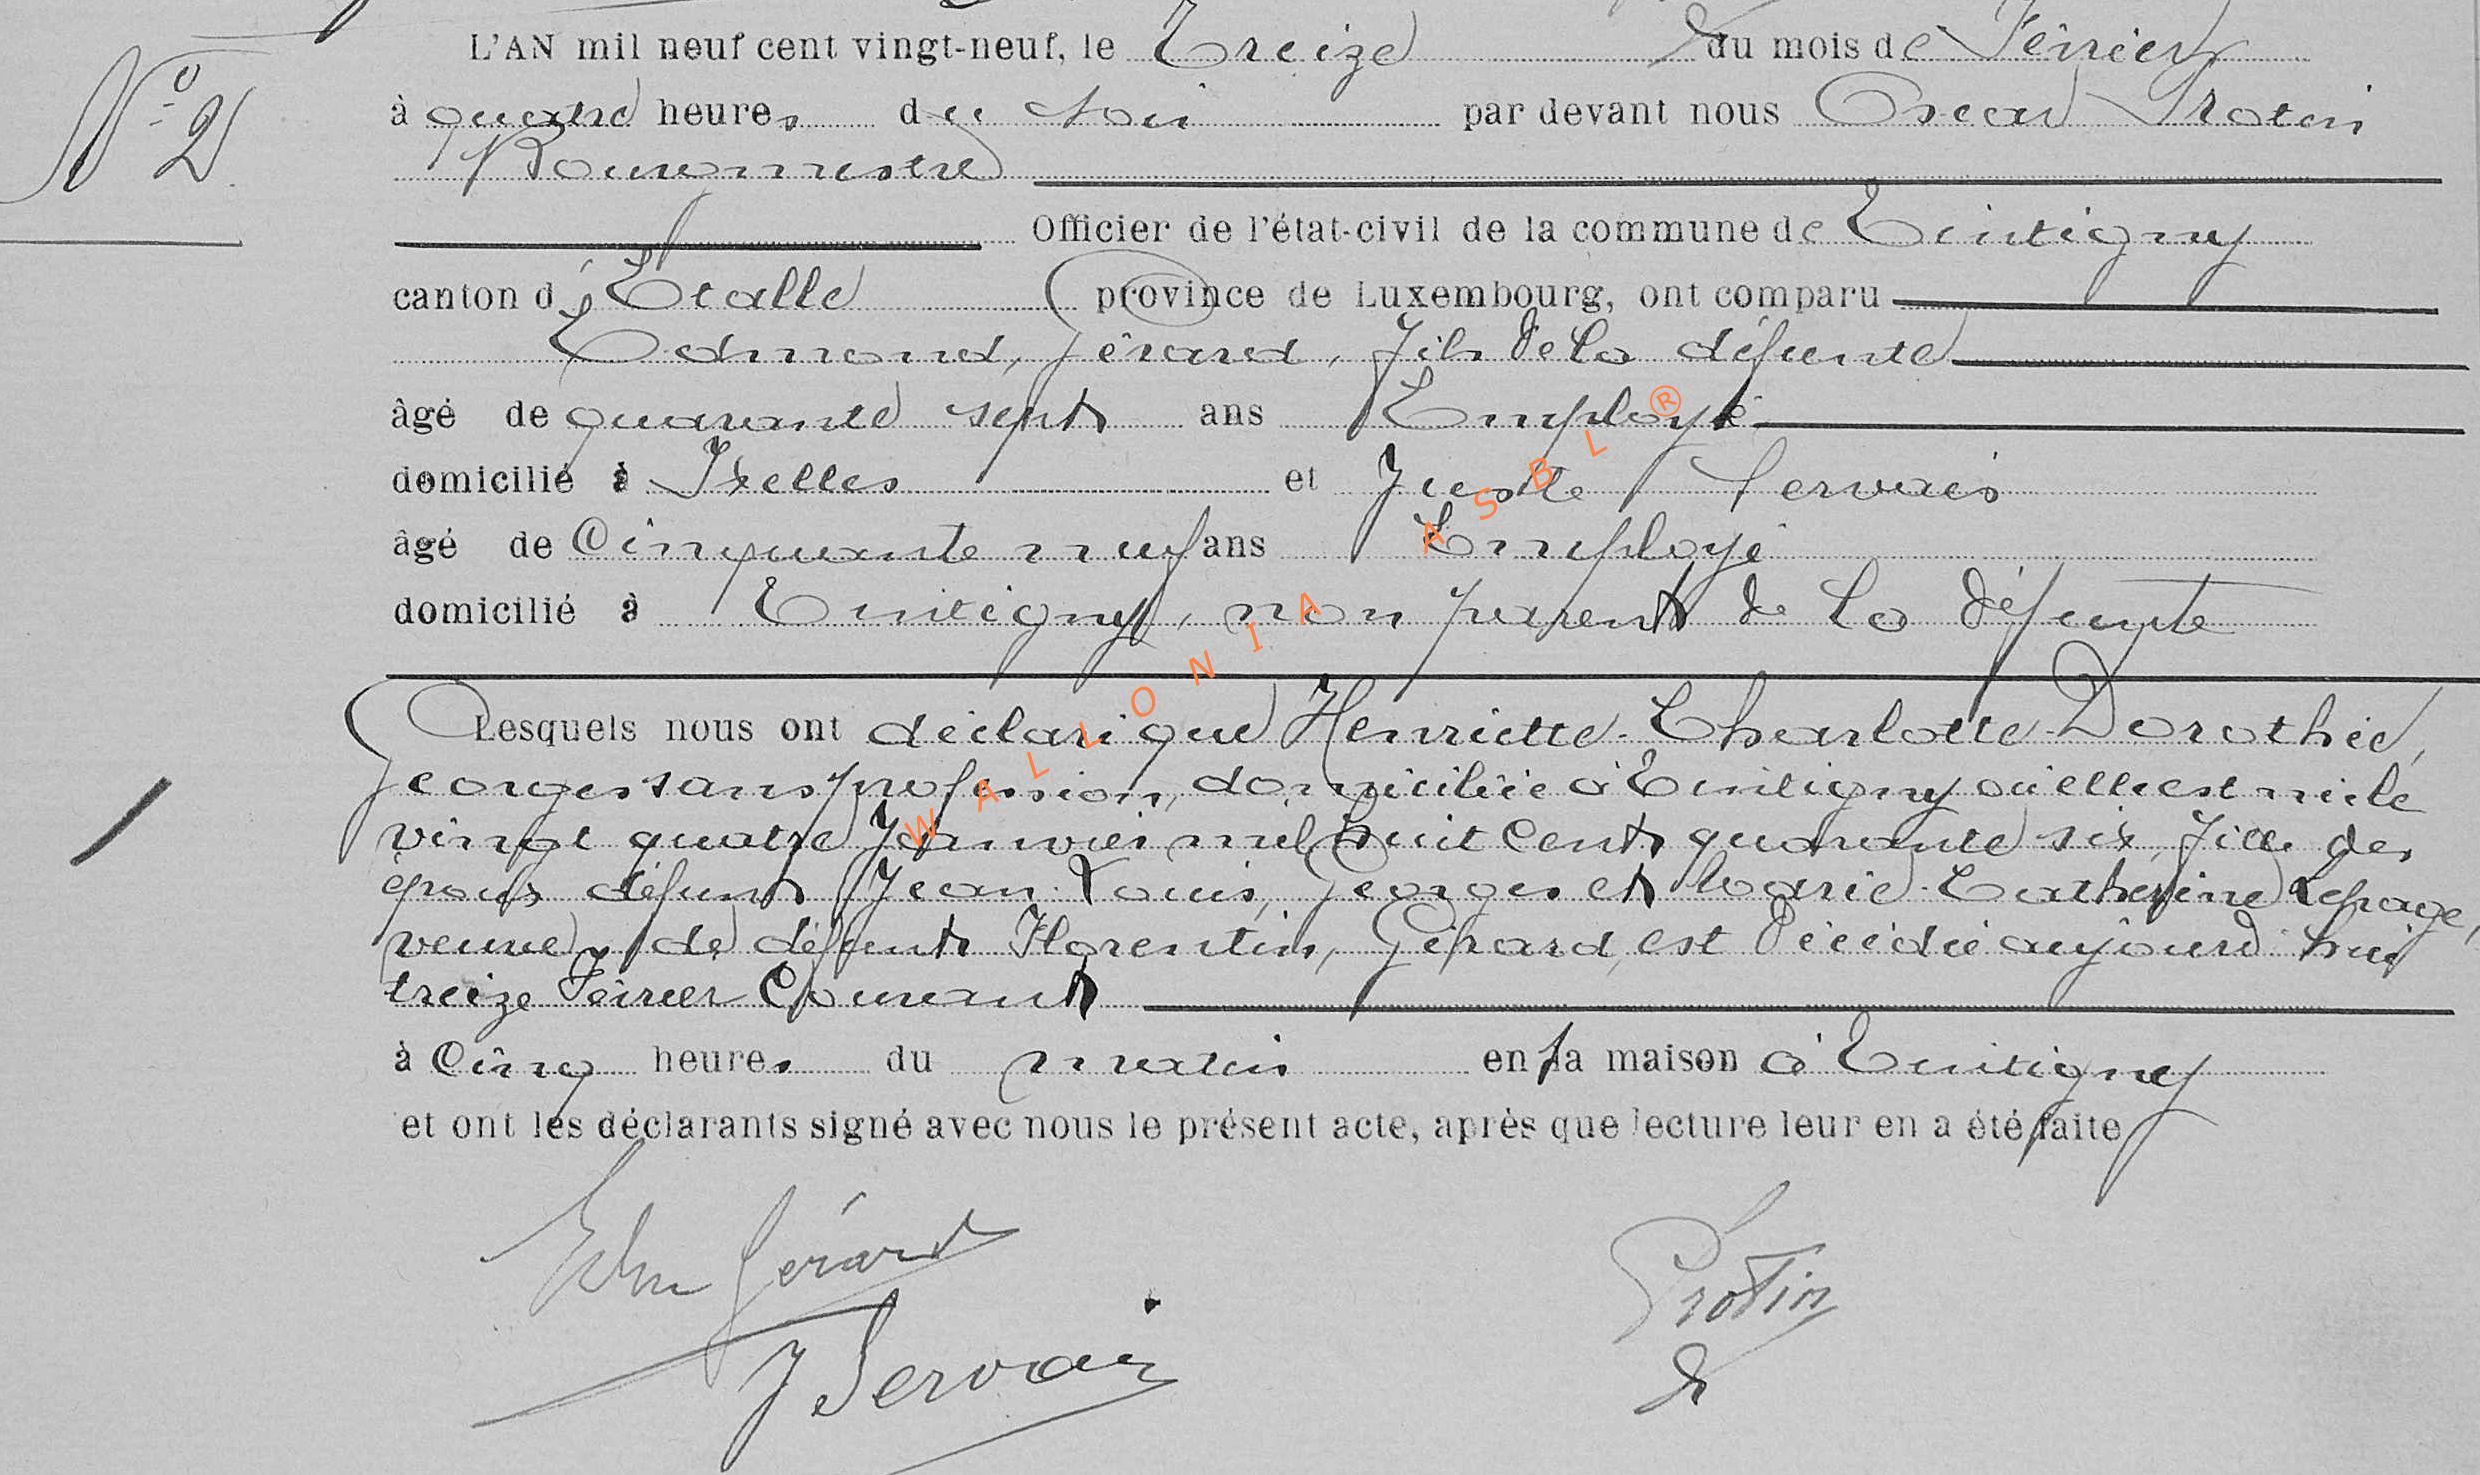 N° 2
L'AN mil neuf cent vingt-neuf, le Treize du mois de Février
à quatre heures du soir par devant nous Oscar Protin
Bourgmestre
Officier de l'état-civil de la commune de Tintigny
canton d'Etalle province de Luxembourg, ont comparu
Edmond, Gérard, fils de la défunte
âgé de quarante sept ans Employé
domicilié à Ixelles et Juste Servais
âgé de Cinquante neuf ans Employé
domicilié à Tintigny, non parent de la défunte
Lesquels nous ont déclaré que Henriette-Charlotte-Dorothée,
Georges sans profession, domiciliée à Tintigny où elle est née le
vingt quatre Janvier mil huit cent quarante six, fille des
époux défunts Jean-Louis, Georges et Marie-Catherine Lepage,
veuve de défunt Florentin, Gérard, est décédée aujourd'hui
treize Février Courant
à Cinq heures du matin en sa maison à Tintigny
et ont les déclarants signé avec nous le présent acte, après que lecture leur en a été faite
Edm Gérard
Protin
J Servais
WALLONIA ASBL ®